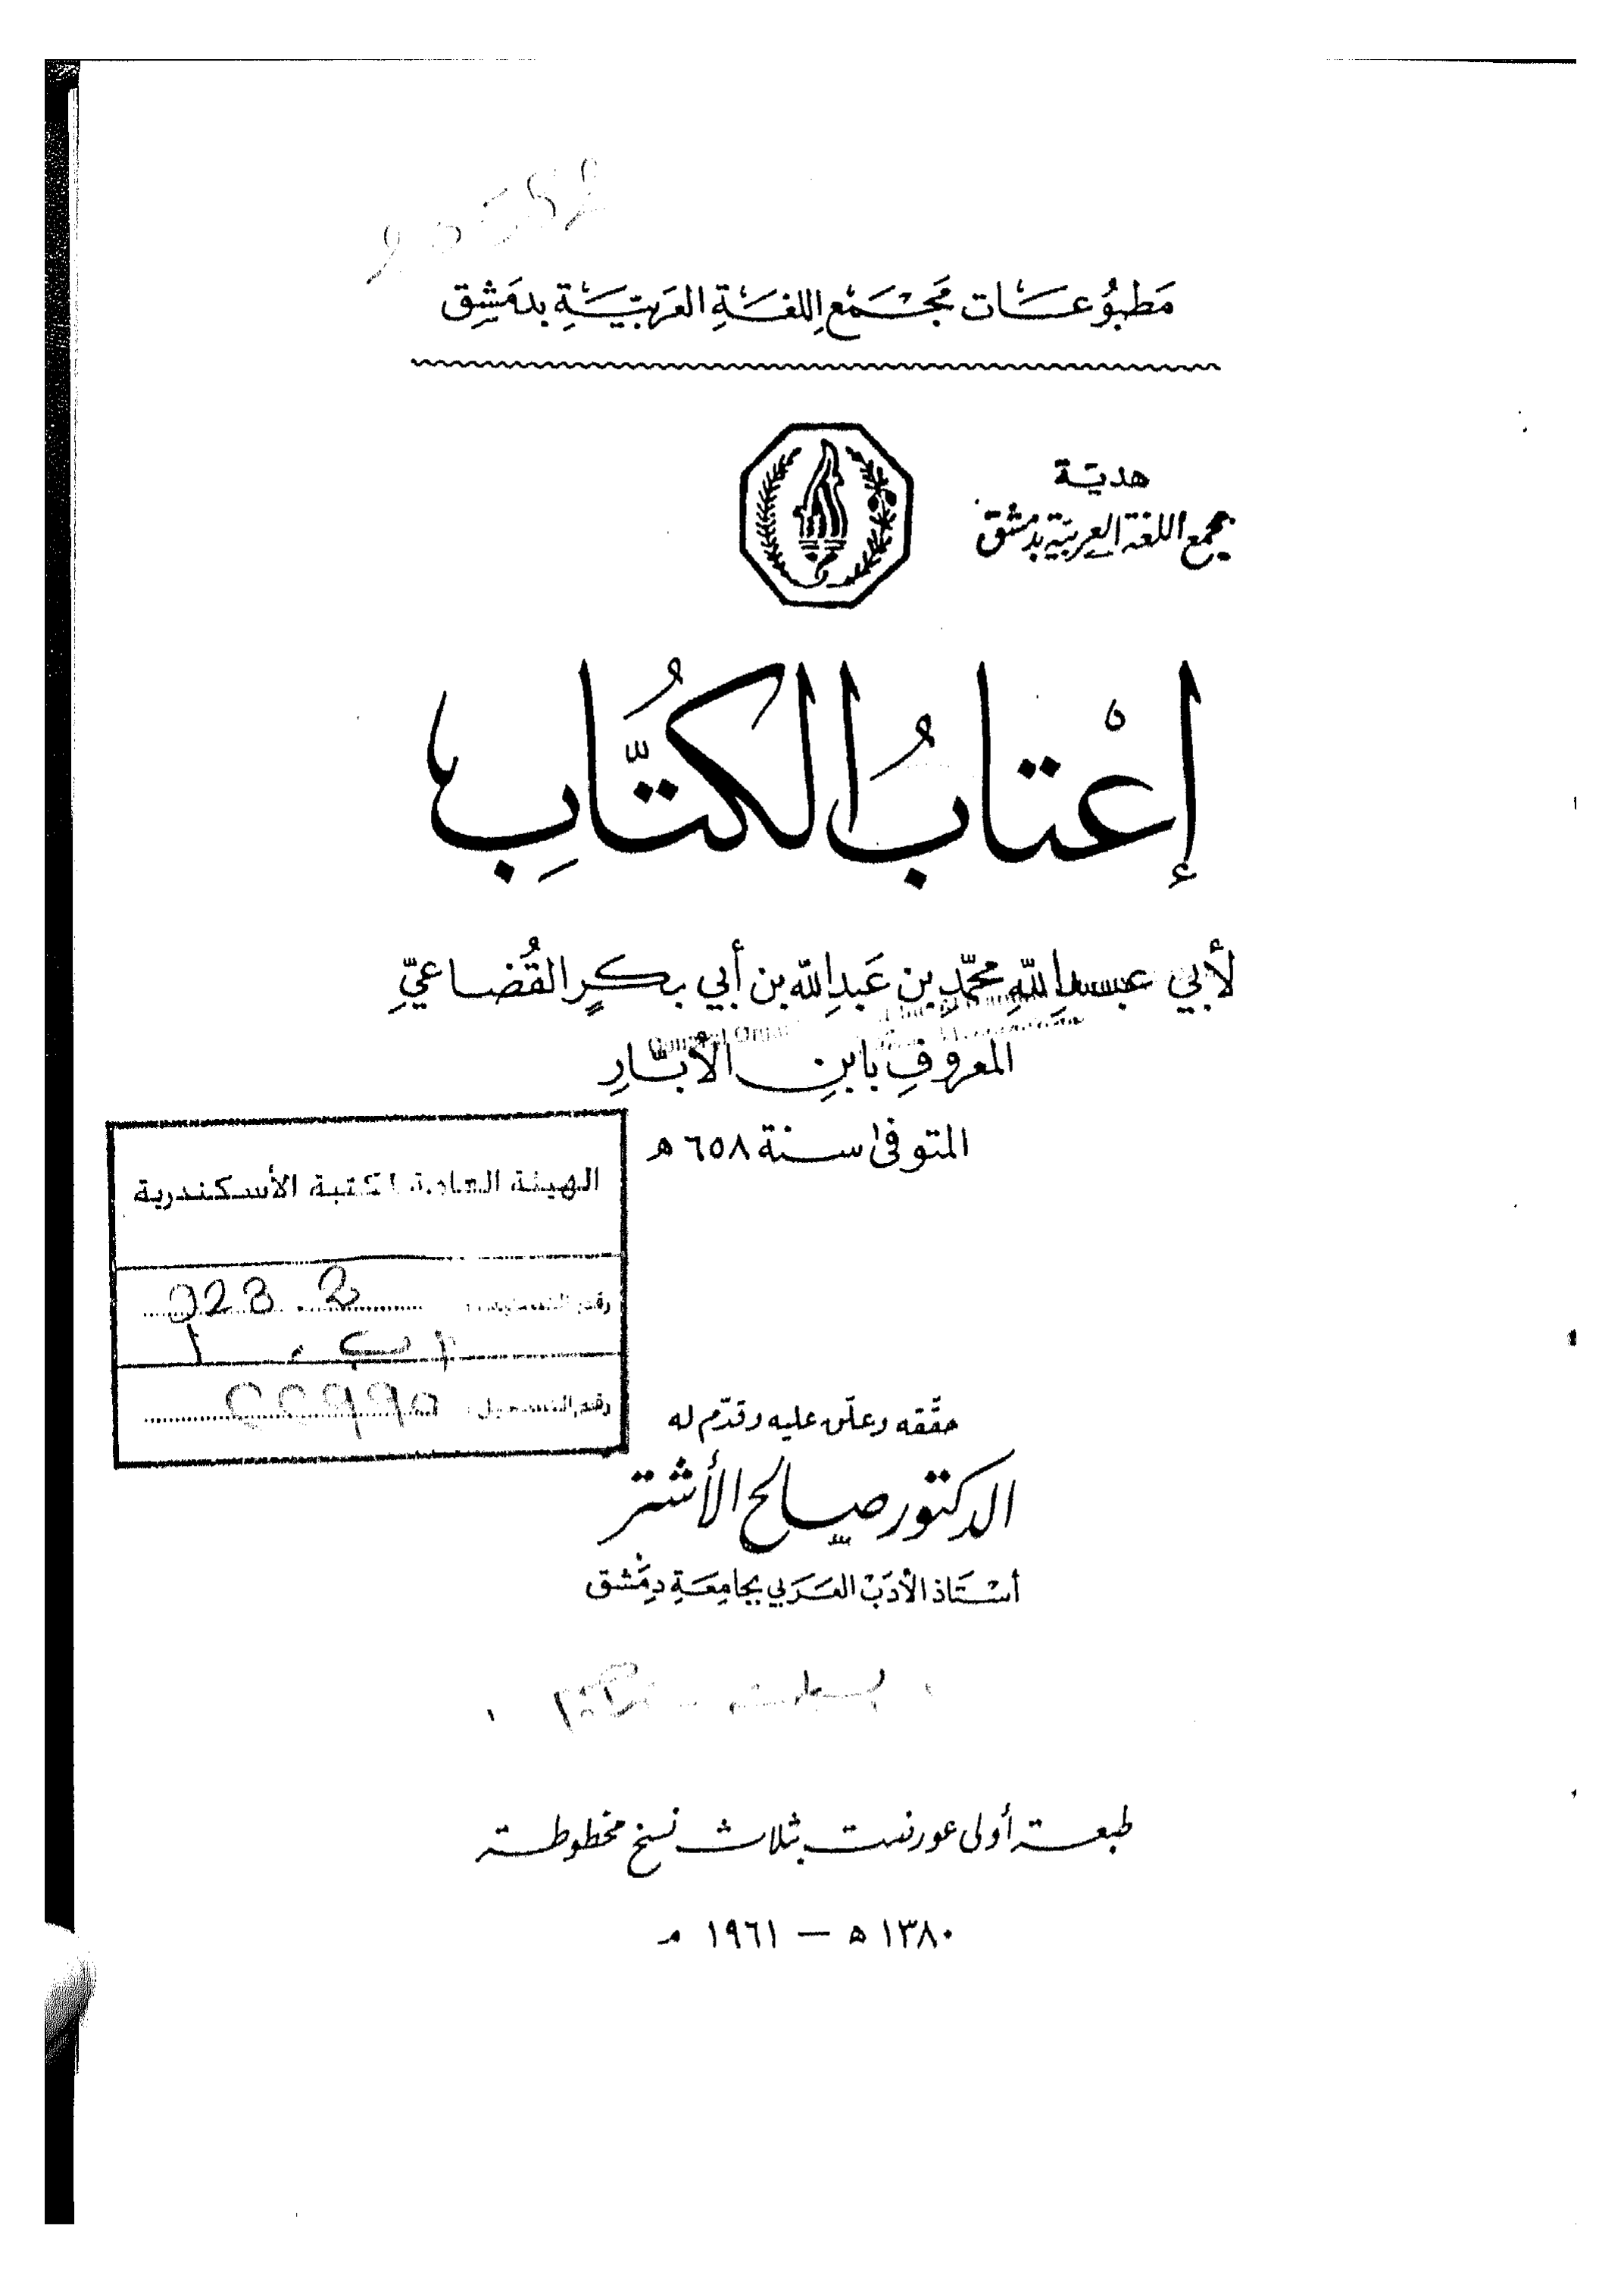 مَطبُوعَات مَجْمَع اللغَةِ العَرَبيَّةِ بدمَشِق
هديّة
مجمع اللغة العربية بدمشق
إعْتابُ الكُتَّابِ
لأبي عبداللهِ محمّدِ بن عَبدِالله بن أبي بكرٍ القُضاعيِّ
المعروفِ بابنِ الأبّارِ
المتوفى سنة ٦٥٨ ه
الهيئة العامة لمكتبة الأسكندرية
رقم التصنيف: 928.2
رقم التسجيل: ٢٢٩٩٥
حقّقه وعلّق عليه وقدّم له
الدكتور صالح الأشتر
أسْتَاذ الأدَبْ العَرَبي بجَامِعَةِ دِمَشق
طبعة أولى عورضت بثلاث نسخ مخطوطة
١٣٨٠ ه – ١٩٦١ م